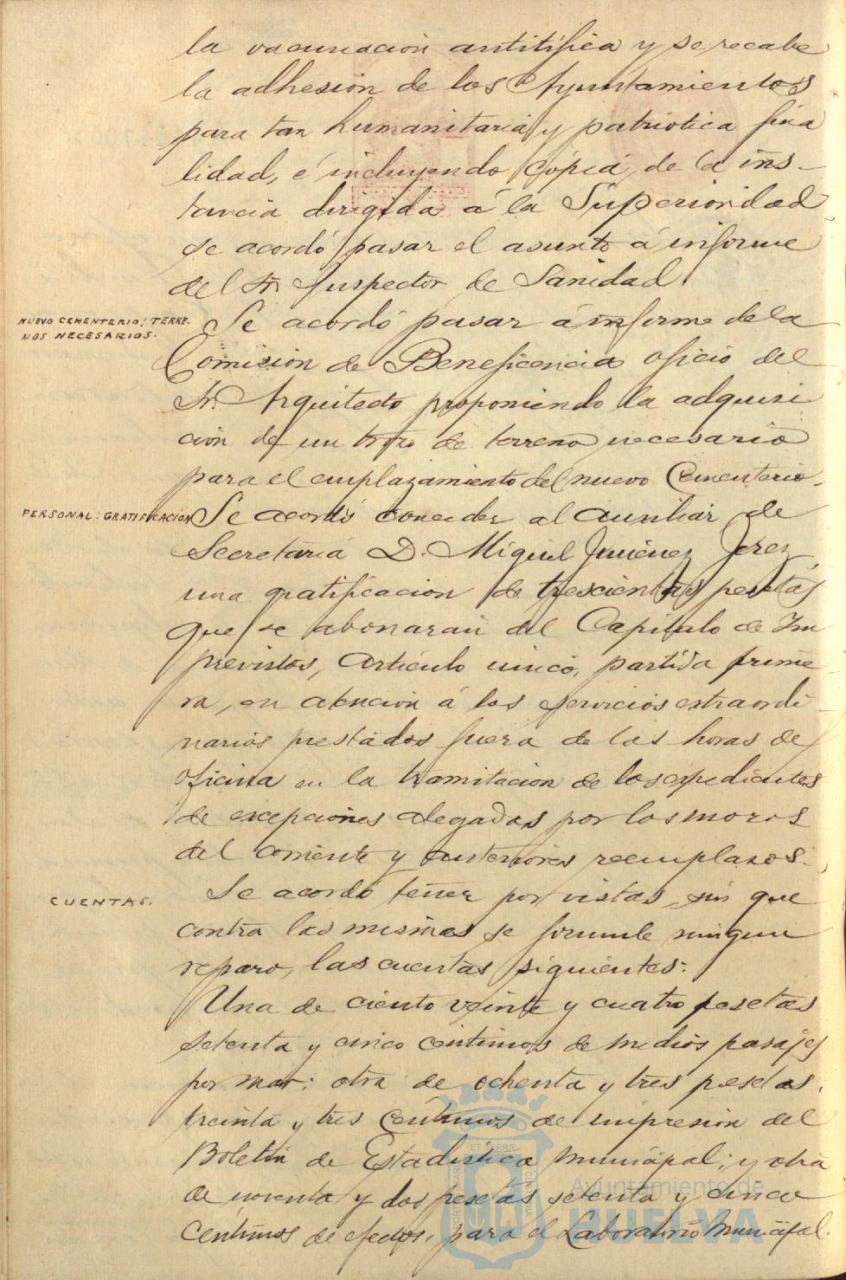 la vacunación antitífica y se recabe
la adhesión de los Ayuntamientos
para tan humanitaria y patriótica fina
lidad, é incluyendo cópia, de la ins-
tancia dirigida á la Superioridad
se acordó pasar el asunto á informe
del Sr. Inspector de Sanidad.
NUEVO CEMENTERIO: TERRE-
NOS NECESARIOS.
Se acordó pasar á informe de la
Comisión de Beneficencia oficio del
Sr. Arquitecto proponiendo la adquisi
ción de un trozo de terreno necesario
para el emplazamiento del nuevo Cementerio.
PERSONAL: GRATIFICACION
Se acordó conceder al auxiliar de
Secretaría D. Miguel Jiménez Jerez,
una gratificacion de trescientas pesetas
que se abonarán del Capítulo de Im
previstos, artículo único, partida prime
ra, en atención á los servicios extraordi
narios prestados fuera de las horas de
oficina en la tramitacion de los expedientes
de excepciones alegadas por los mozos
del corriente y anteriores reemplazos.
CUENTAS.
Se acordó tener por vistas, sin que
contra las mismas se formule ningun
reparo, las cuentas siguientes:
Una de ciento veinte y cuatro pesetas
setenta y cinco céntimos de medios pasajes
por mar; otra de ochenta y tres pesetas,
treinta y tres céntimos de impresión del
Boletín de Estadística municipal; y otra
de noventa y dos pesetas setenta y cinco
céntimos de efectos, para el Laboratorio municipal.
Ayuntamiento de
HUELVA